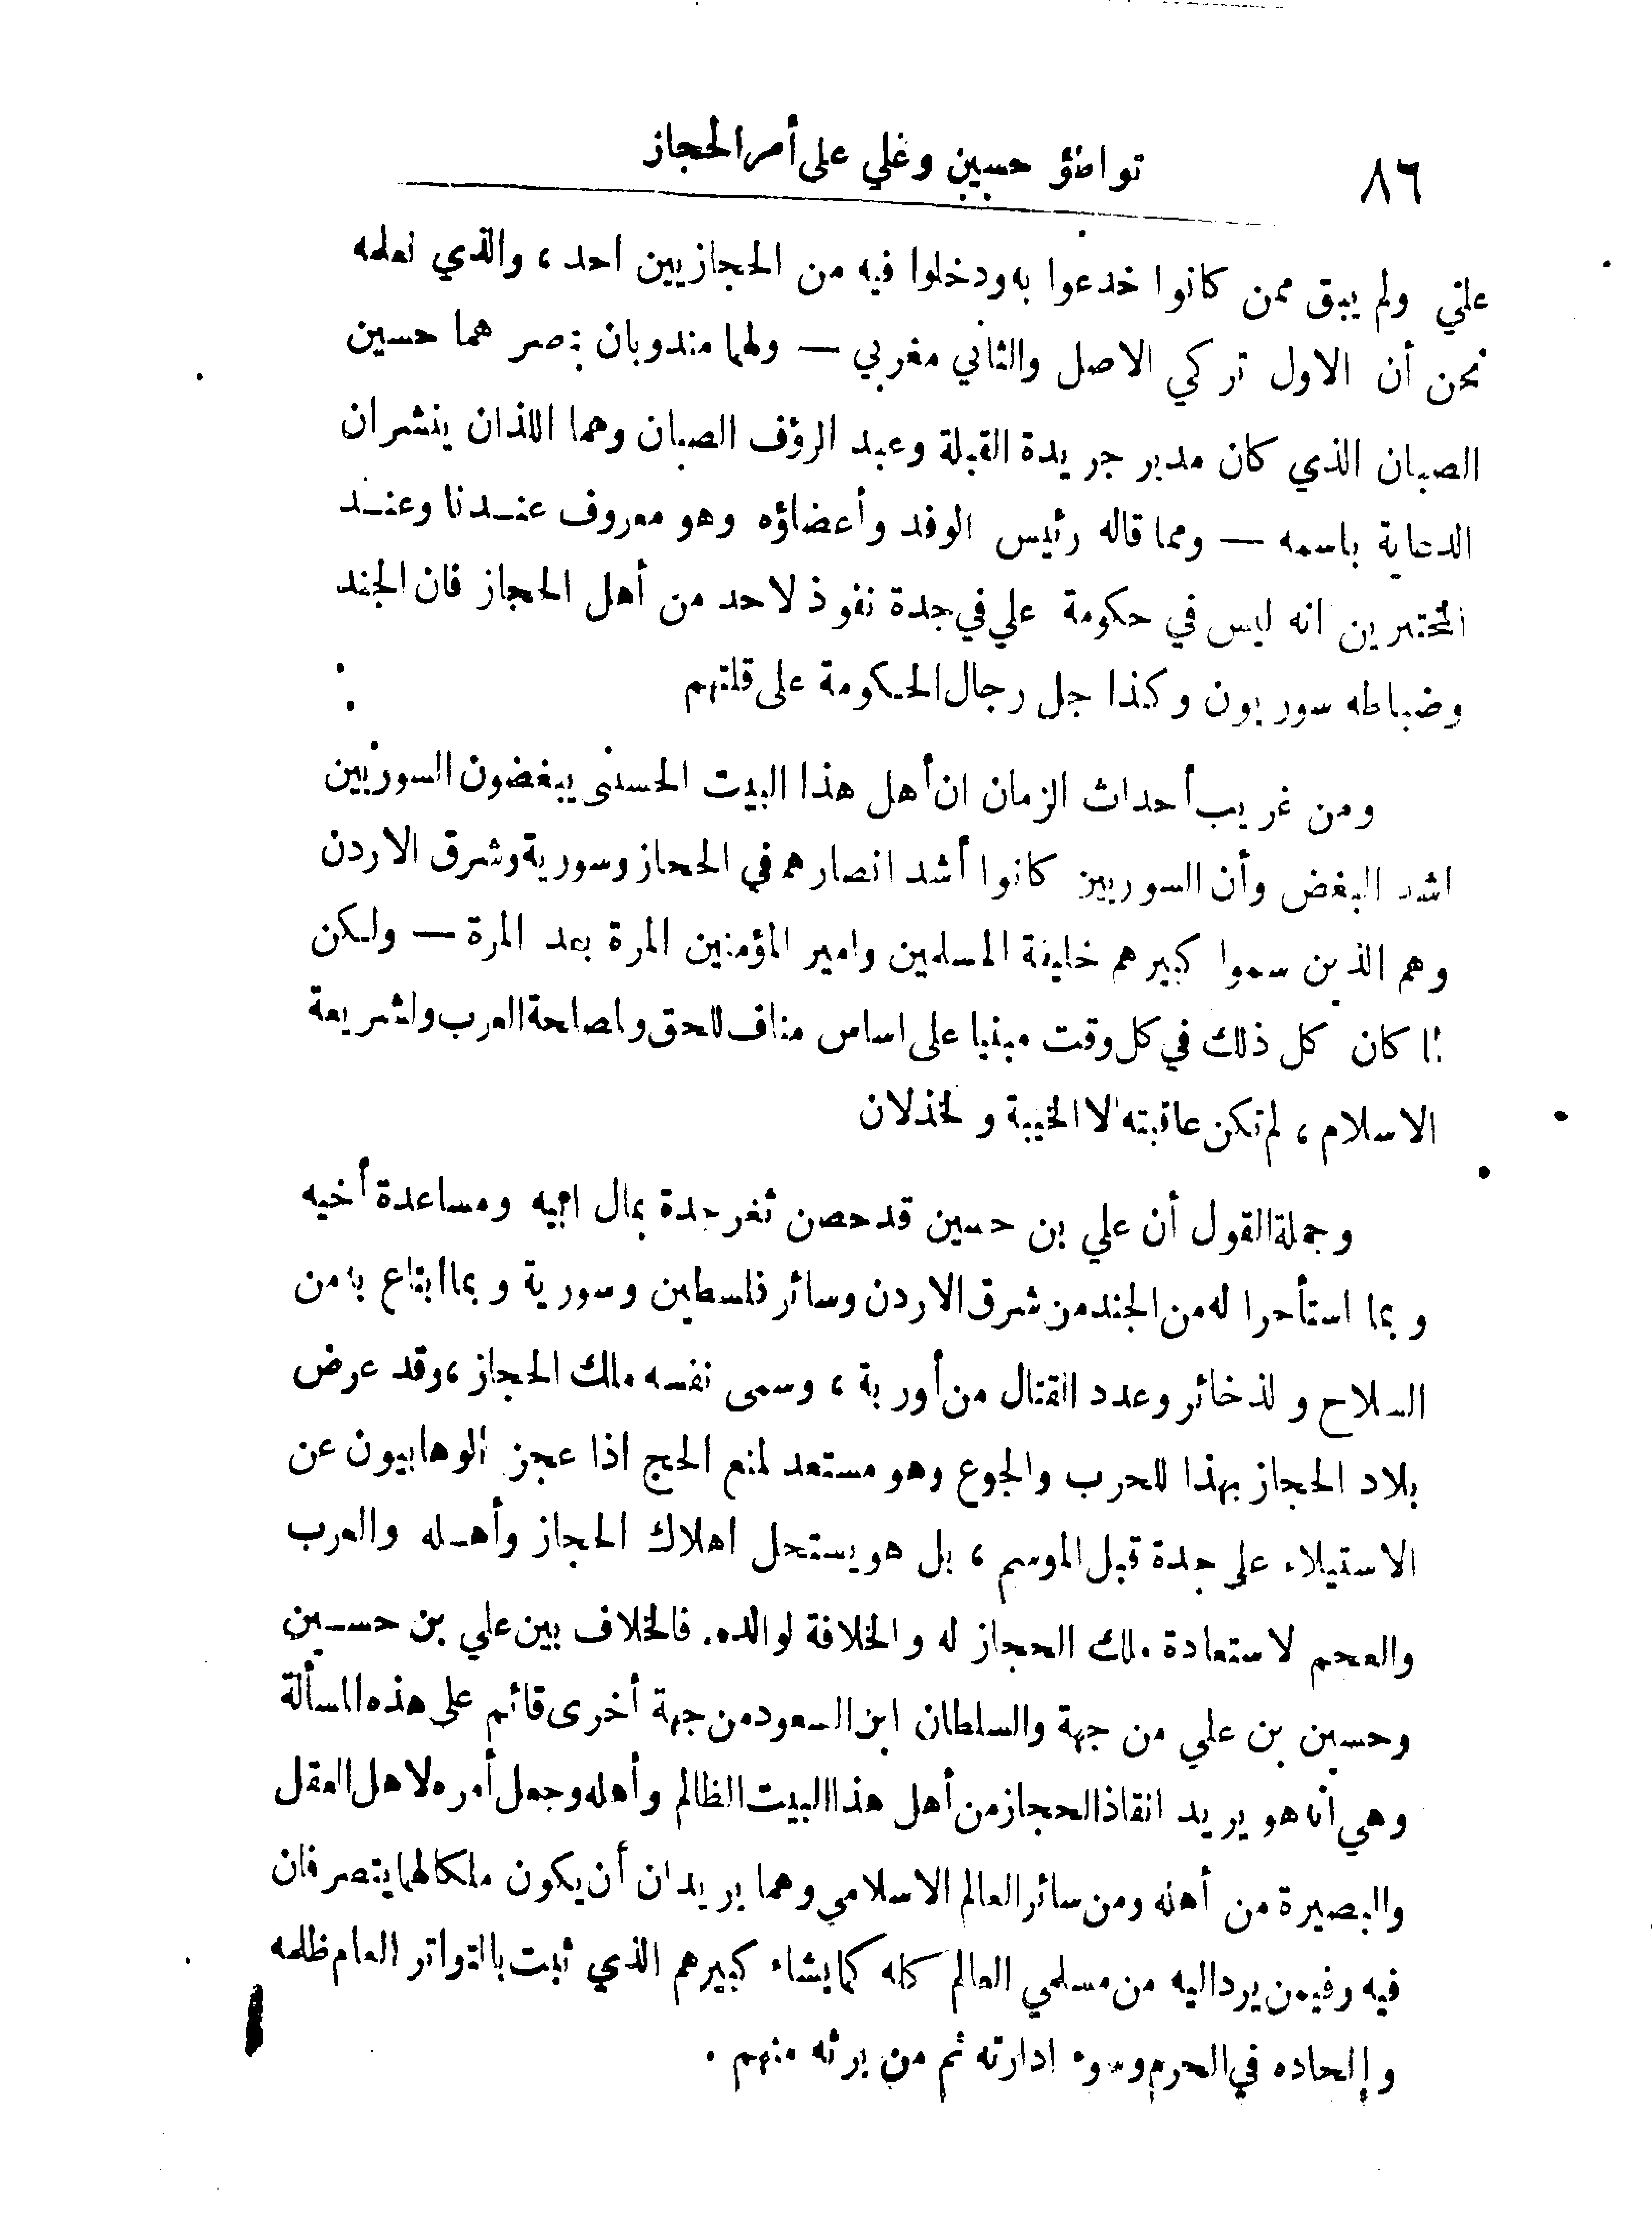 ٨٦
تواطؤ حسين وعلي على أمر الحجاز
علي ولم يبق ممن كانوا خدعوا به ودخلوا فيه من الحجازيين احد ، والذي نعلمه
نحن أن الاول تركي الاصل والثاني مغربي — ولهما مندوبان بمصر هما حسين
الصبان الذي كان مدير جريدة القبلة وعبد الرؤف الصبان وهما اللذان ينشران
الدعاية باسمه — ومما قاله رئيس الوفد وأعضاؤه وهو معروف عندنا وعند
المختبرين انه ليس في حكومة علي في جدة نفوذ لاحد من أهل الحجاز فان الجند
وضباطه سوريون وكذا جل رجال الحكومة على قلتهم
ومن غريب أحداث الزمان ان أهل هذا البيت الحسنى يبغضون السوريين
اشد البغض وأن السوريين كانوا أشد انصارهم في الحجاز وسورية وشرق الاردن
وهم الذين سموا كبيرهم خليفة المسلمين وامير المؤمنين المرة بعد المرة — ولكن
لما كان كل ذلك في كل وقت مبنيا على اساس مناف للحق ولمصلحة العرب ولشريعة
الاسلام ، لم تكن عاقبته الا الخيبة والخذلان
وجملة القول أن علي بن حسين قد حصن ثغر جدة بمال ابيه ومساعدة أخيه
وبما استأجرا له من الجند من شرق الاردن وسائر فلسطين وسورية وبما ابتاع به من
السلاح والذخائر وعدد القتال من أوربة ، وسمى نفسه ملك الحجاز ، وقد عرض
بلاد الحجاز بهذا للحرب والجوع وهو مستعد لمنع الحج اذا عجز الوهابيون عن
الاستيلاء على جدة قبل الموسم ، بل هو يستحل اهلاك الحجاز وأهله والعرب
والعجم لاستعادة ملك الحجاز له والخلافة لوالده. فالخلاف بين علي بن حسين
وحسين بن علي من جهة والسلطان ابن السعود من جهة أخرى قائم على هذه المسألة
وهي أنه هو يريد انقاذ الحجاز من أهل هذا البيت الظالم وأهله وجعل أمره لاهل العقل
والبصيرة من أهله ومن سائر العالم الاسلامي وهما يريدان أن يكون ملكا لهما يتصرفان
فيه وفيمن يرد اليه من مسلمي العالم كله كما يشاء كبيرهم الذي ثبت بالتواتر العام ظلمه
وإلحاده في الحرم وسوء ادارته ثم من يرثه منهم .